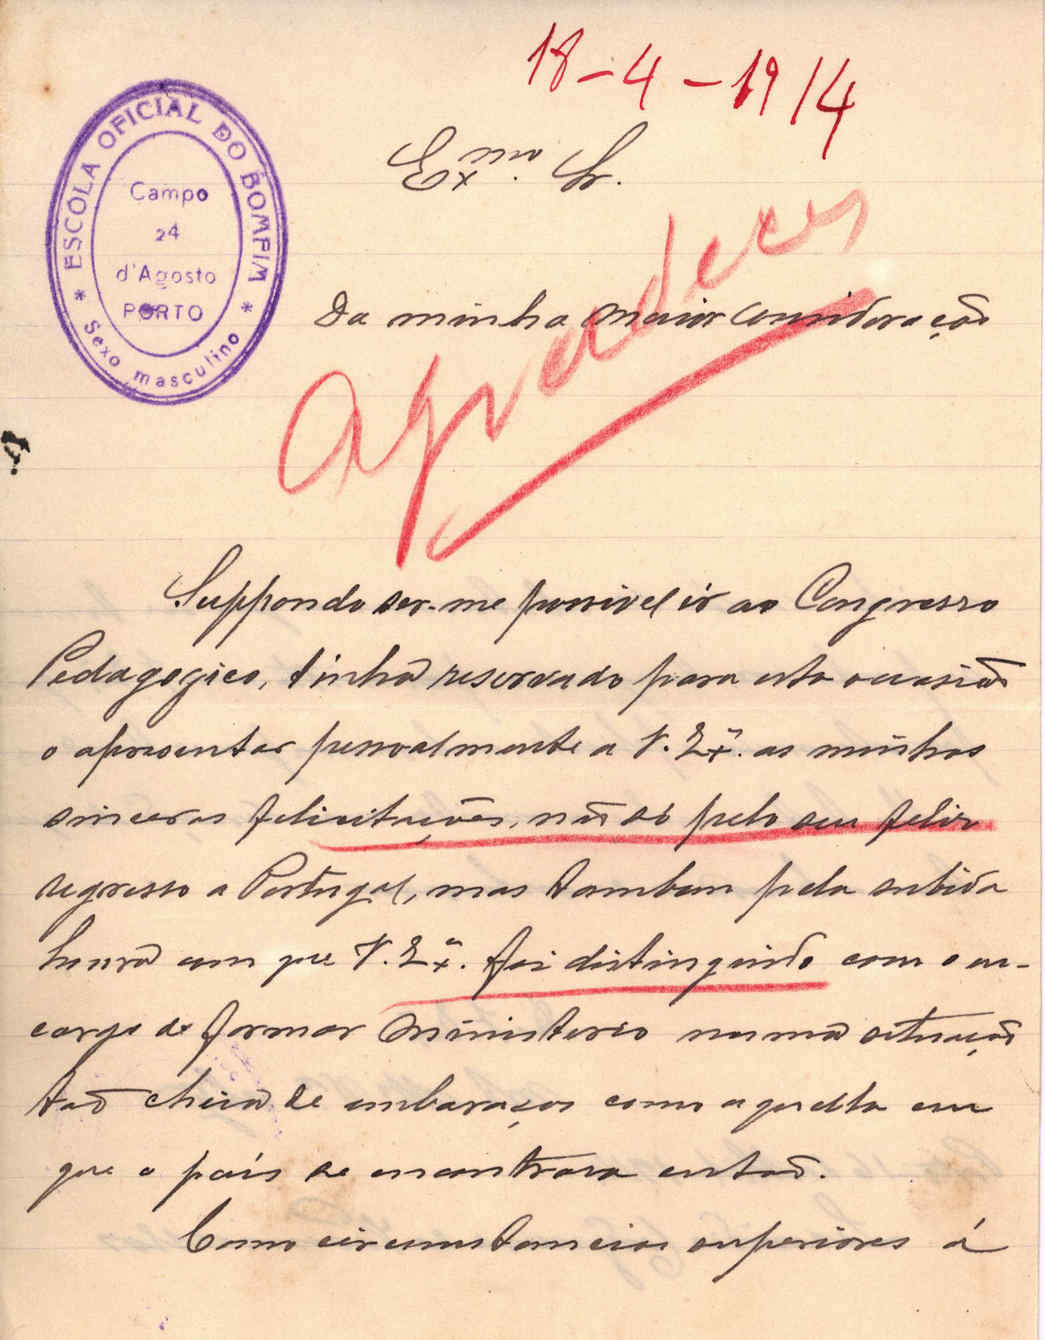 18-4-1914
ESCÓLA OFICIAL DO BOMFIM
Campo
24
d'Agosto
PORTO
* Sexo masculino *
Exmo. Sr.
Da minha maior consideração
Agradecer
Suppondo ser-me possivel ir ao Congresso
Pedagogico, tinha reservado para esta occasião
o apresentar pessoalmente a V. Exª. as minhas
sinceras felicitações, não só pelo seu feliz
regresso a Portugal, mas tambem pela subida
honra em que V. Exª. foi distinguido com o en-
cargo de formar Ministerio numa situação
tão cheia de embaraços como aquella em
que o país se encontrava então.
Como circumstancias superiores á